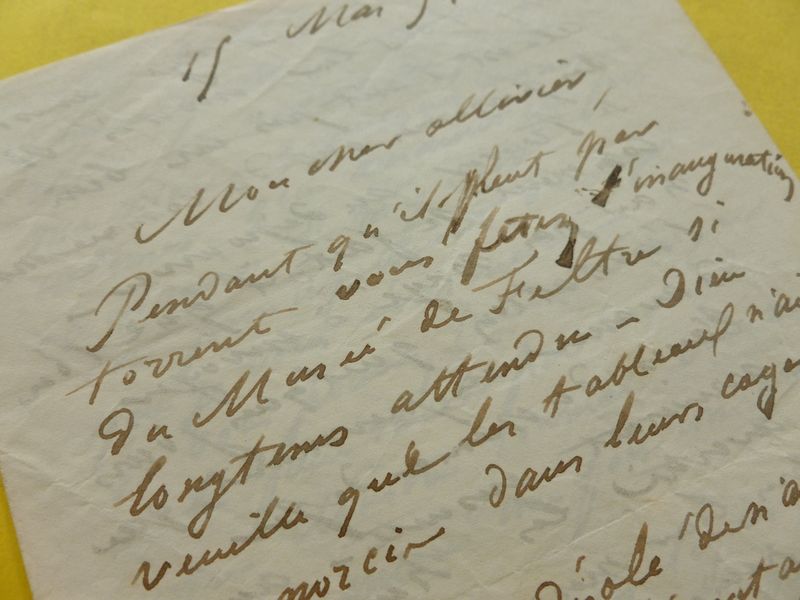 15 Mai 5
Mon cher Ollivier,
Pendant qu'il pleut par
torrent vous fetez l'inauguration
du Museé de Feltre si
longtems attendu – Dieu
veuille que les tableaux n'ai
noircir dans leurs cages
désolé de n'a